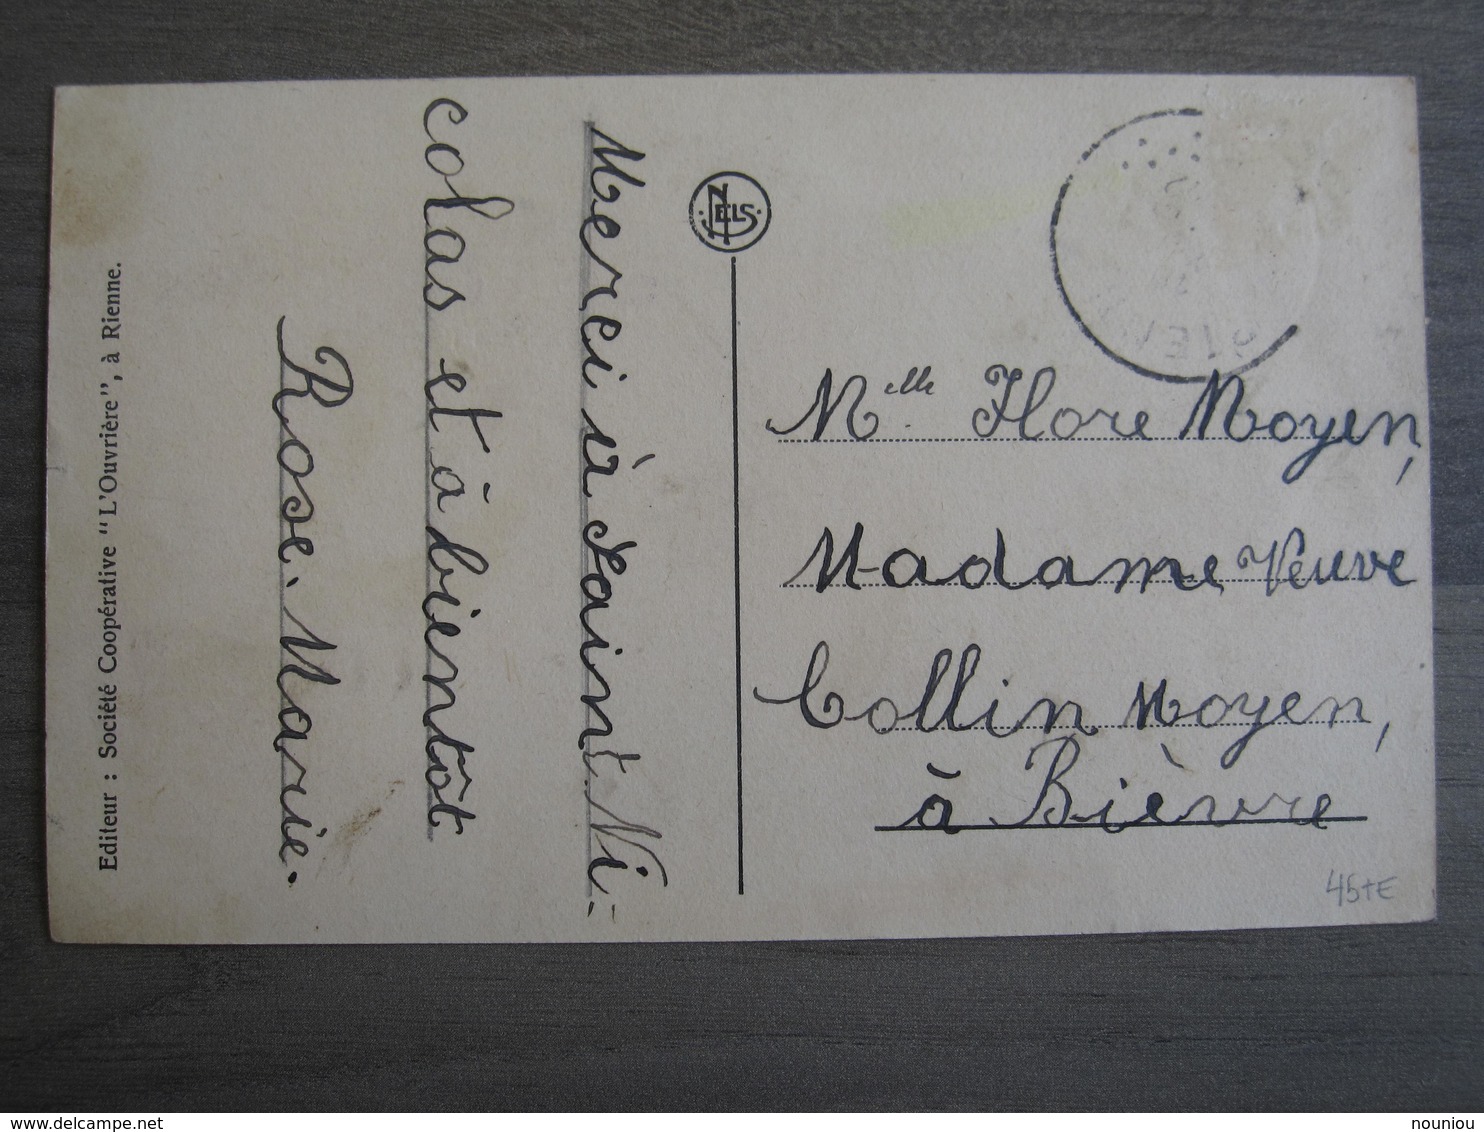 Editeur : Société Coopérative "L'Ouvrière", à Rienne.
Merci à Saint Ni-
colas et à bientôt
Rose. Marie.
NELS
Mlle Flore Moyen,
Madame Veuve
Collin Moyen,
à Bièvre
45+E
nouniou